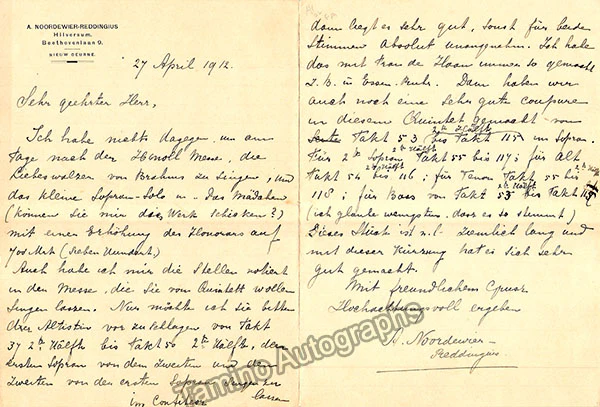 A. NOORDEWIER-REDDINGIUS
Hilversum.
Beethovenlaan 9.
NIEUW DEURNE.
27 April 1912.
Sehr geehrter Herr,
Ich habe nichts dagegen, um am
Tage nach der Hmoll Messe, die
Liebeswalzer von Brahms zu singen, und
das kleine Sopran-Solo u. Das Mädchen
(können Sie mir das Werk schicken?)
mit einer Erhöhung des Honorars auf
700 Mrk (sieben Hundert)
Auch habe ich mir die Stellen notiert
in der Messe, die Sie vom Quintett wollen
singen lassen. Nur möchte ich Sie bitten
den Altistin vor zu schlagen von Takt
37 2te Hälfte bis Takt 50 2te Hälfte, den
ersten Sopran von dem Zweiten und den
Zweiten von den ersten Sopran singen zu
lassen
im Confiteor
dann liegt es sehr gut, sonst für beide
Stimmen absolut unangenehm. Ich habe
das mit Frau de Haan immer so gemacht
z.B. in Essen-Ruhr. Dann haben wir
auch noch eine sehr gute coupure
in diesem Quintet gemacht von
2te Hälfte
Takt 53 bis Takt 115 im Sopran.
2te Hälfte
Für 2te Sopran Takt 55 bis 117; für Alt
2te Hälfte
Takt 54 bis 116; für Tenor Takt 55 bis
2te Hälfte
118; für Bass von Takt 53 bis Takt
(ich glaube wenigsten, dass es so stemmt)
Dieses Stück ist n.l. ziemlich lang und
mit dieser Kürzung hat es sich sehr
gut gemacht.
Mit freundlichem Gruss
Hochachtungsvoll ergeben
A. Noordewier-
Reddingius.
Tamino Autographs